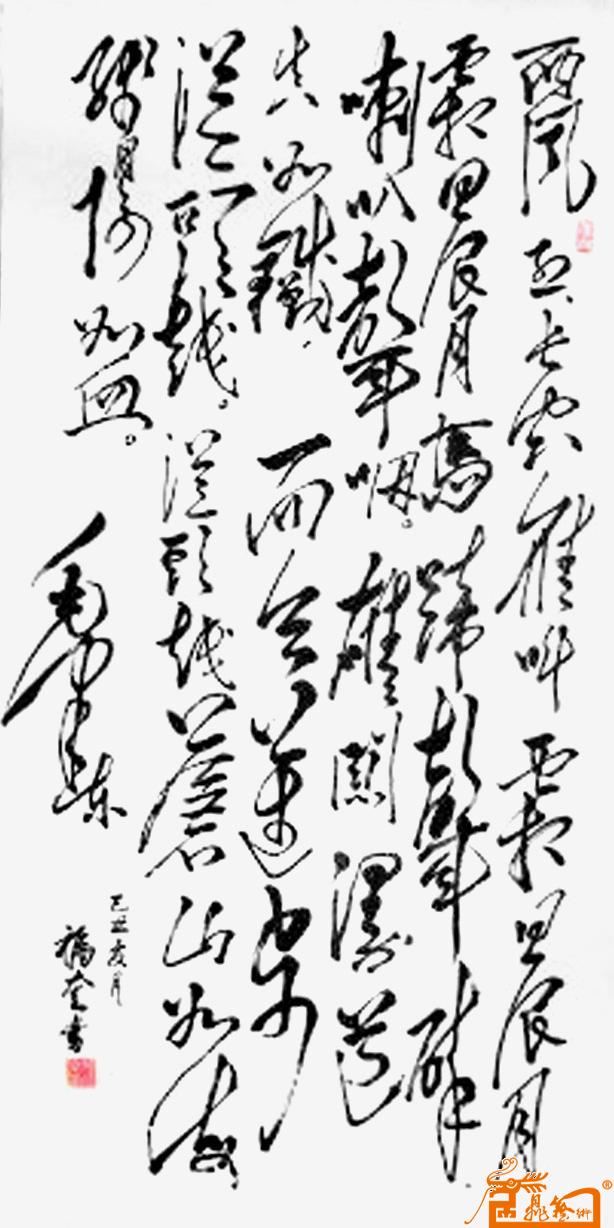 西風烈長空雁叫霜晨月
霜晨月馬蹄聲碎
喇叭聲咽。雄關漫道
真如鐵,而今邁步
從頭越。從頭越蒼山如海
殘陽如血。
毛澤東
己丑夏月
書